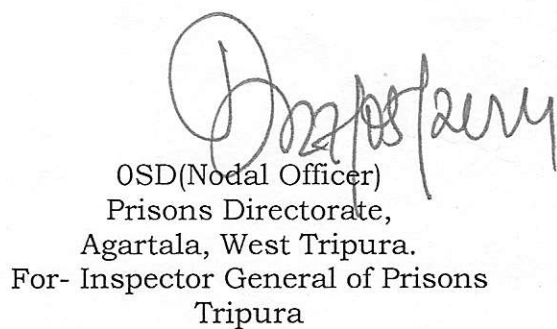 0SD(Nodal Officer)
Prisons Directorate,
Agartala, West Tripura.
For- Inspector General of Prisons
Tripura